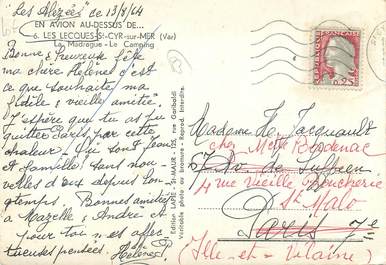 "Les Alizés" de 13/8/64
EN AVION AU-DESSUS DE...
6. LES LECQUES-St-CYR-sur-MER (Var)
La Madrague - Le Camping
Bonne & heureuse fête
ma chère Hélène c'est
ce que souhaite ma
fidèle & vieille amitié.
J'espère que tu as pu
quitter Paris par cette
chaleur - Où sont Jean
et famille! Sans nou-
velles d'eux depuis long-
temps. Bonnes amitiés
à Mazelle & André et
pour toi mes affec-
tueuses pensées. Hélène
Edition TARDY St-MAUR - 125, rue Garibaldi
Véritable photo au bromure - Reprod. interdite.
REPUBLIQUE FRANÇAISE
0,25
POSTES
Madame H. Jacquault
chez Mette
de Suffren
4 rue Vieille Boucherie
St Malo
Paris 7e
(Ille-et-Vilaine)